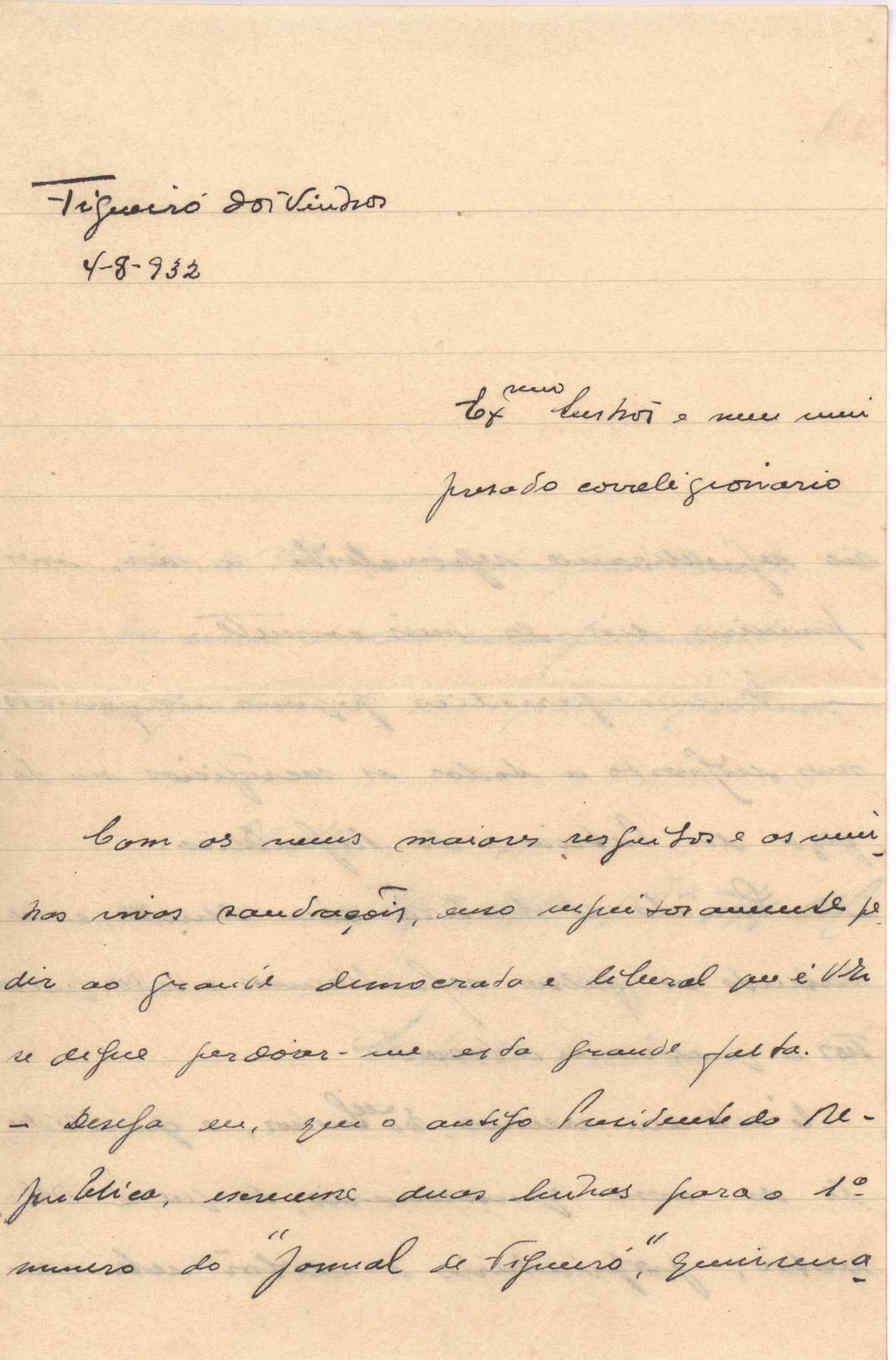 Figueiró dos Vinhos
4-8-932
Exmo Senhor e meu mui
presado correligionario
Com os meus maiores respeitos e as mi-
nhas vivas saudações, ouso respeitosamente pe-
dir ao grande democrata e liberal que é VExa
se digne perdoar-me esta grande falta.
- Deseja eu, que o antigo Presidente da Re-
publica, escrevesse duas linhas para o 1º
numero do "Jornal de Figueiró", quinzena